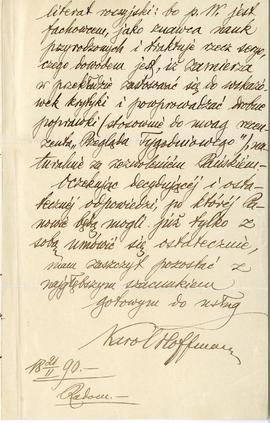 literat rosyjski: bo p. W. jest
fachowcem, jako znawca nauk
przyrodzonych i traktuje rzecz seryo,
czego dowodem jest, iż zamierza
w przekładzie zastosować się do wskazó-
wek krytyki i powprowadzać drobne
poprawki (stosownie do uwag rece-
zenta „Przeglądu Tygodniowego"), na-
turalnie za zezwoleniem Pańskiem.
Oczekując decydującej i osta-
tecznej odpowiedzi, po której Pa-
nowie będą mogli już tylko z
sobą umówić się ostatecznie,
mam zaszczyt pozostać z
najgłębszym szacunkiem
gotowym do usług
Karol Hoffman
18 21/II 90.—
Radom.—